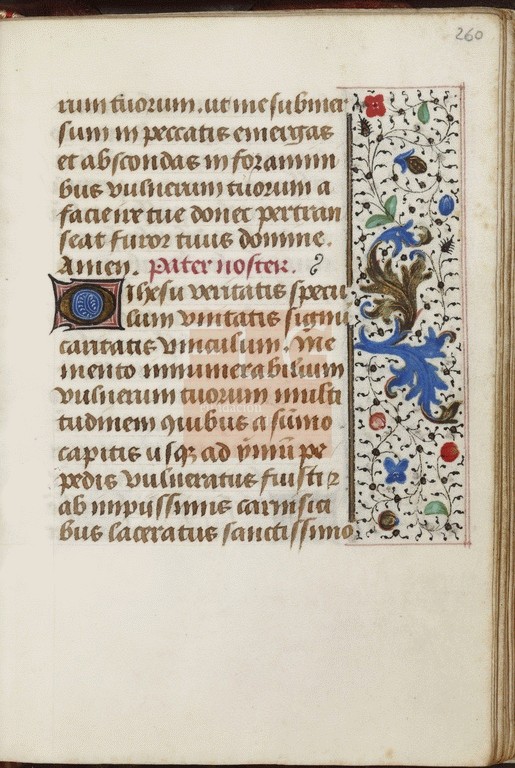 260
rum tuorum. ut me submer
sum in peccatis emergas
et abscondas in foramini
bus vulnerum tuorum a
facie ire tue donec pertran
seat furor tuus domine.
Amen. Pater noster.
O ihesu veritatis specu
lum vnitatis signū
caritatis vinculum. Me
mento innumerabilium
vulnerum tuorum multi
tudinem quibus a sūmo
capitis usqꝫ ad ymū pe
pedis vulneratus fuisti ꝛ
ab impiissimis carnifici
bus laceratus sanctissimo
fundación